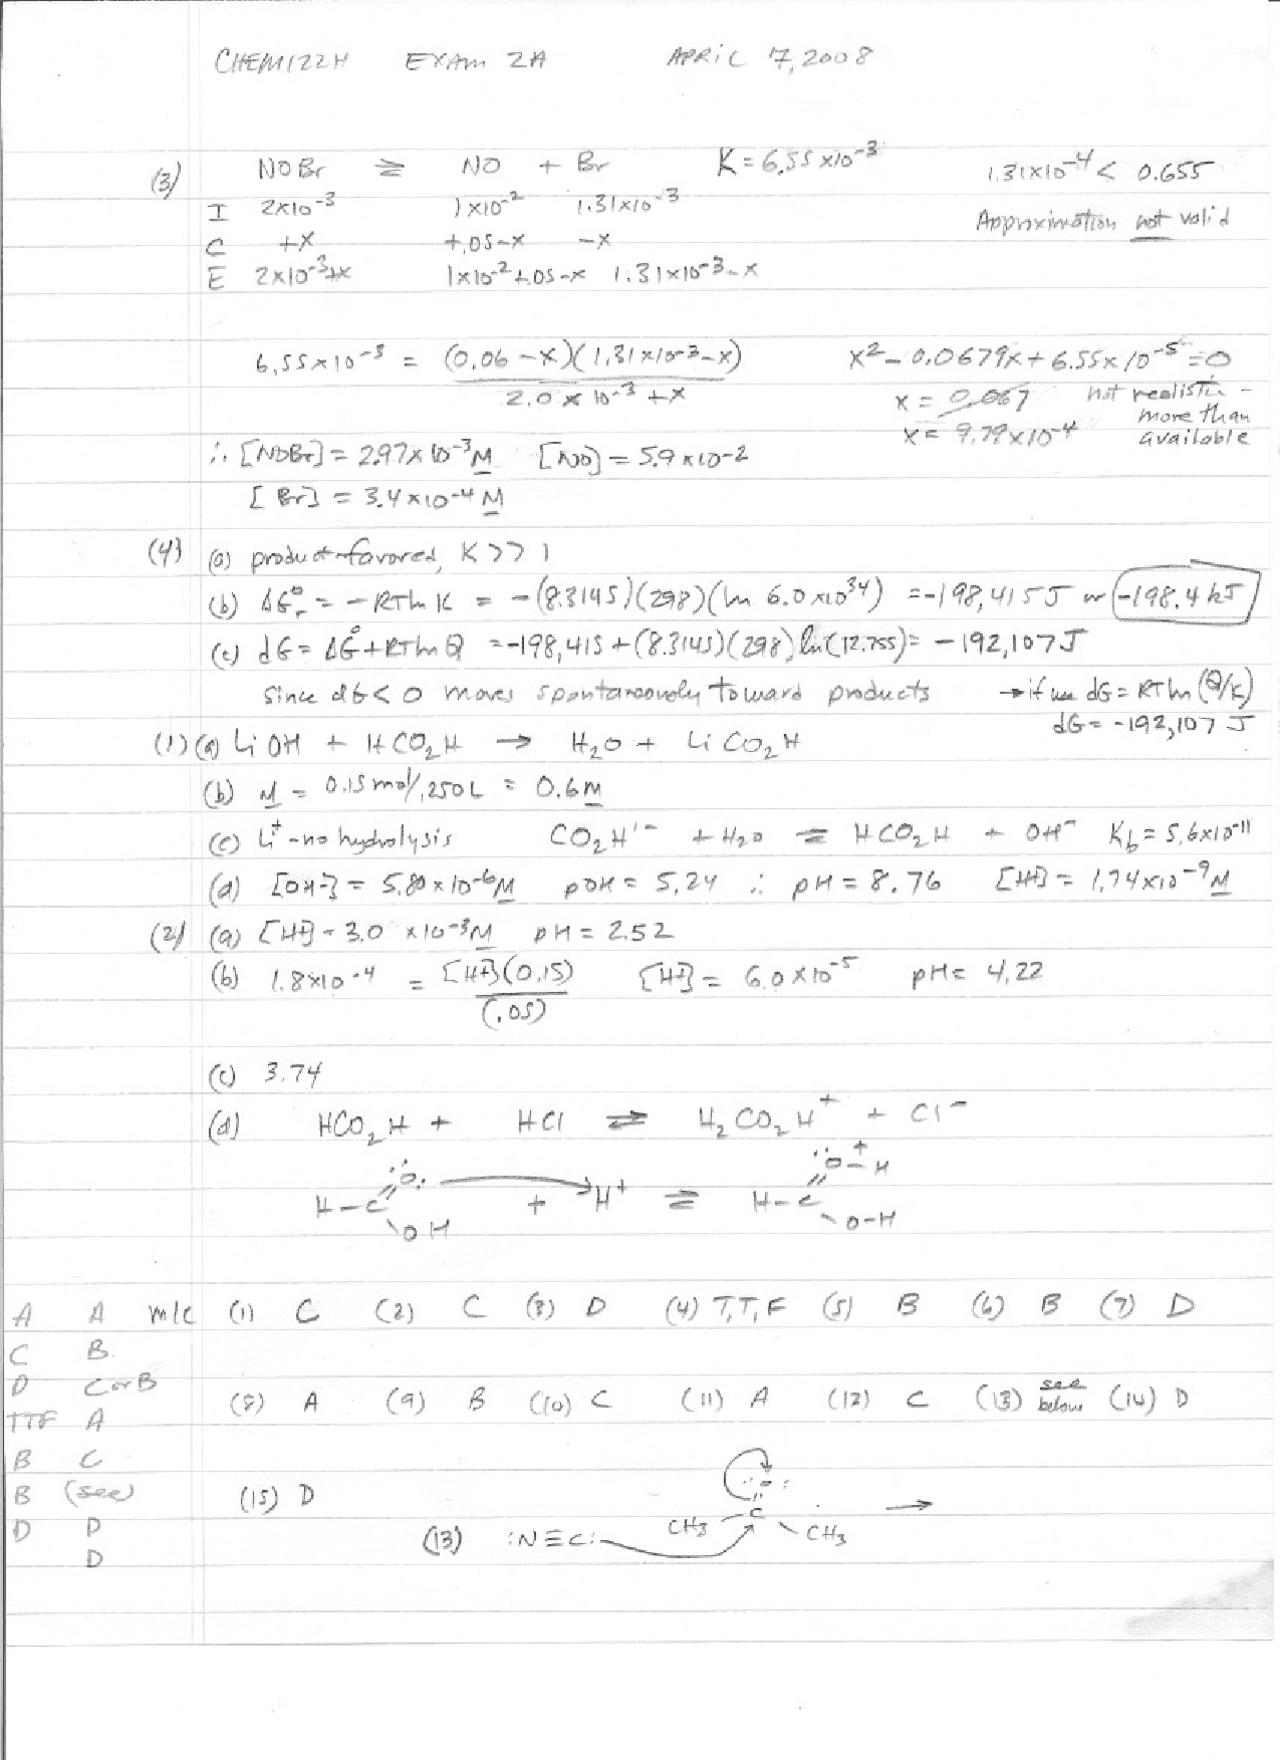 CHEM122H EXAM 2A APRIL 7, 2008
(3) NOBr ⇌ NO + Br K = 6.55 x10^-3 1.31x10^-4 < 0.655
I 2x10^-3 1x10^-2 1.31x10^-3 Approximation not valid
C +x +.05-x -x
E 2x10^-3+x 1x10^-2+.05-x 1.31x10^-3-x
6.55x10^-3 = (0.06-x)(1.31x10^-3-x) / 2.0x10^-3+x x^2 - 0.0679x + 6.55x10^-5 = 0
x = 0.067 not realistic - more than available
x = 9.79x10^-4
∴ [NOBr] = 2.97x10^-3 M [NO] = 5.9x10^-2
[Br] = 3.4x10^-4 M
(4) (a) product-favored, K>>1
(b) ΔG°r = -RTlnK = -(8.3145)(298)(ln 6.0x10^34) = -198,415 J or -198.4 kJ
(c) dG = ΔG° + RTlnQ = -198,415 + (8.3145)(298)ln(12.755) = -192,107 J
Since dG<0 moves spontaneously toward products → if use dG = RTln(Q/K)
dG = -192,107 J
(1) (a) LiOH + HCO2H → H2O + LiCO2H
(b) M = 0.15 mol/.250L = 0.6 M
(c) Li+ - no hydrolysis CO2H^1- + H2O ⇌ HCO2H + OH- Kb = 5.6x10^-11
(d) [OH-] = 5.80x10^-6 M pOH = 5.24 ∴ pH = 8.76 [H+] = 1.74x10^-9 M
(2) (a) [H+] = 3.0 x10^-3 M pH = 2.52
(b) 1.8x10^-4 = [H+](0.15) / (.05) [H+] = 6.0x10^-5 pH = 4.22
(c) 3.74
(d) HCO2H + HCl ⇌ H2CO2H+ + Cl-
H-C O OH + H+ ⇌ H-C O+-H O-H
A A m/c (1) C (2) C (3) D (4) T,T,F (5) B (6) B (7) D
C B.
D C or B
(8) A (9) B (10) C (11) A (12) C (13) see below (14) D
TTF A
B C
B (see) (15) D
D D (13) :N≡C: CH3 C O CH3 →
D